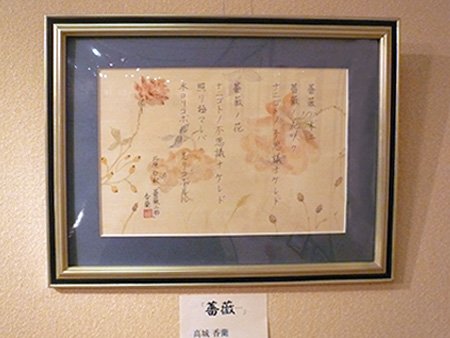 薔薇ノ木ニ
薔薇ノ花サク
ナニゴトノ不思議ナケレド
薔薇ノ花
ナニゴトノ不思議ナケレド
照リ極マレバ
木ヨリコボルル
香蘭
「薔薇」
高城 香蘭